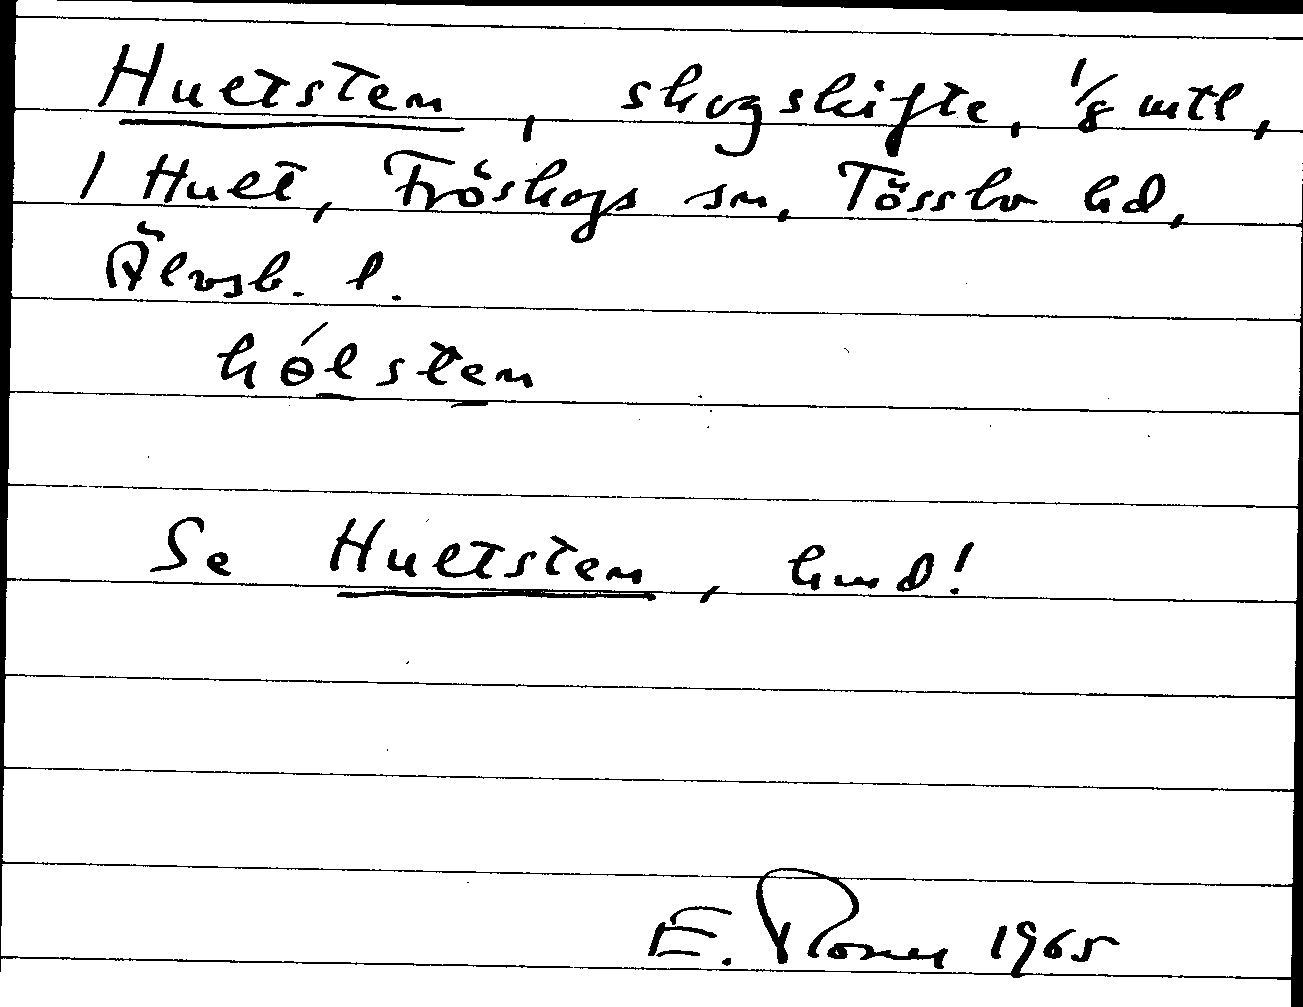 Hultsten, skogskifte, 1/8 mtl,
1 Hult, Fröskogs sn, Tössbo hd,
Älvsb. l.
hólsten
Se Hultsten, hmd!
E. Rosell 1965